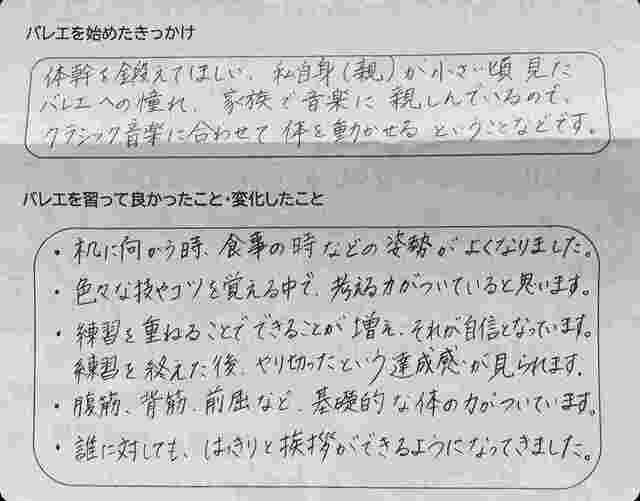 バレエを始めたきっかけ
体幹を鍛えてほしい、私自身(親)が小さい頃見た
バレエへの憧れ、家族で音楽に親しんでいるので、
クラシック音楽に合わせて体を動かせるということなどです。
バレエを習って良かったこと・変化したこと
・机に向かう時、食事の時などの姿勢がよくなりました。
・色々な技やコツを覚える中で、考える力がついていると思います。
・練習を重ねることでできることが増え、それが自信となっています。
練習を終えた後、やり切ったという達成感が見られます。
・腹筋、背筋、前屈など、基礎的な体の力がついています。
・誰に対しても、はっきりと挨拶ができるようになってきました。